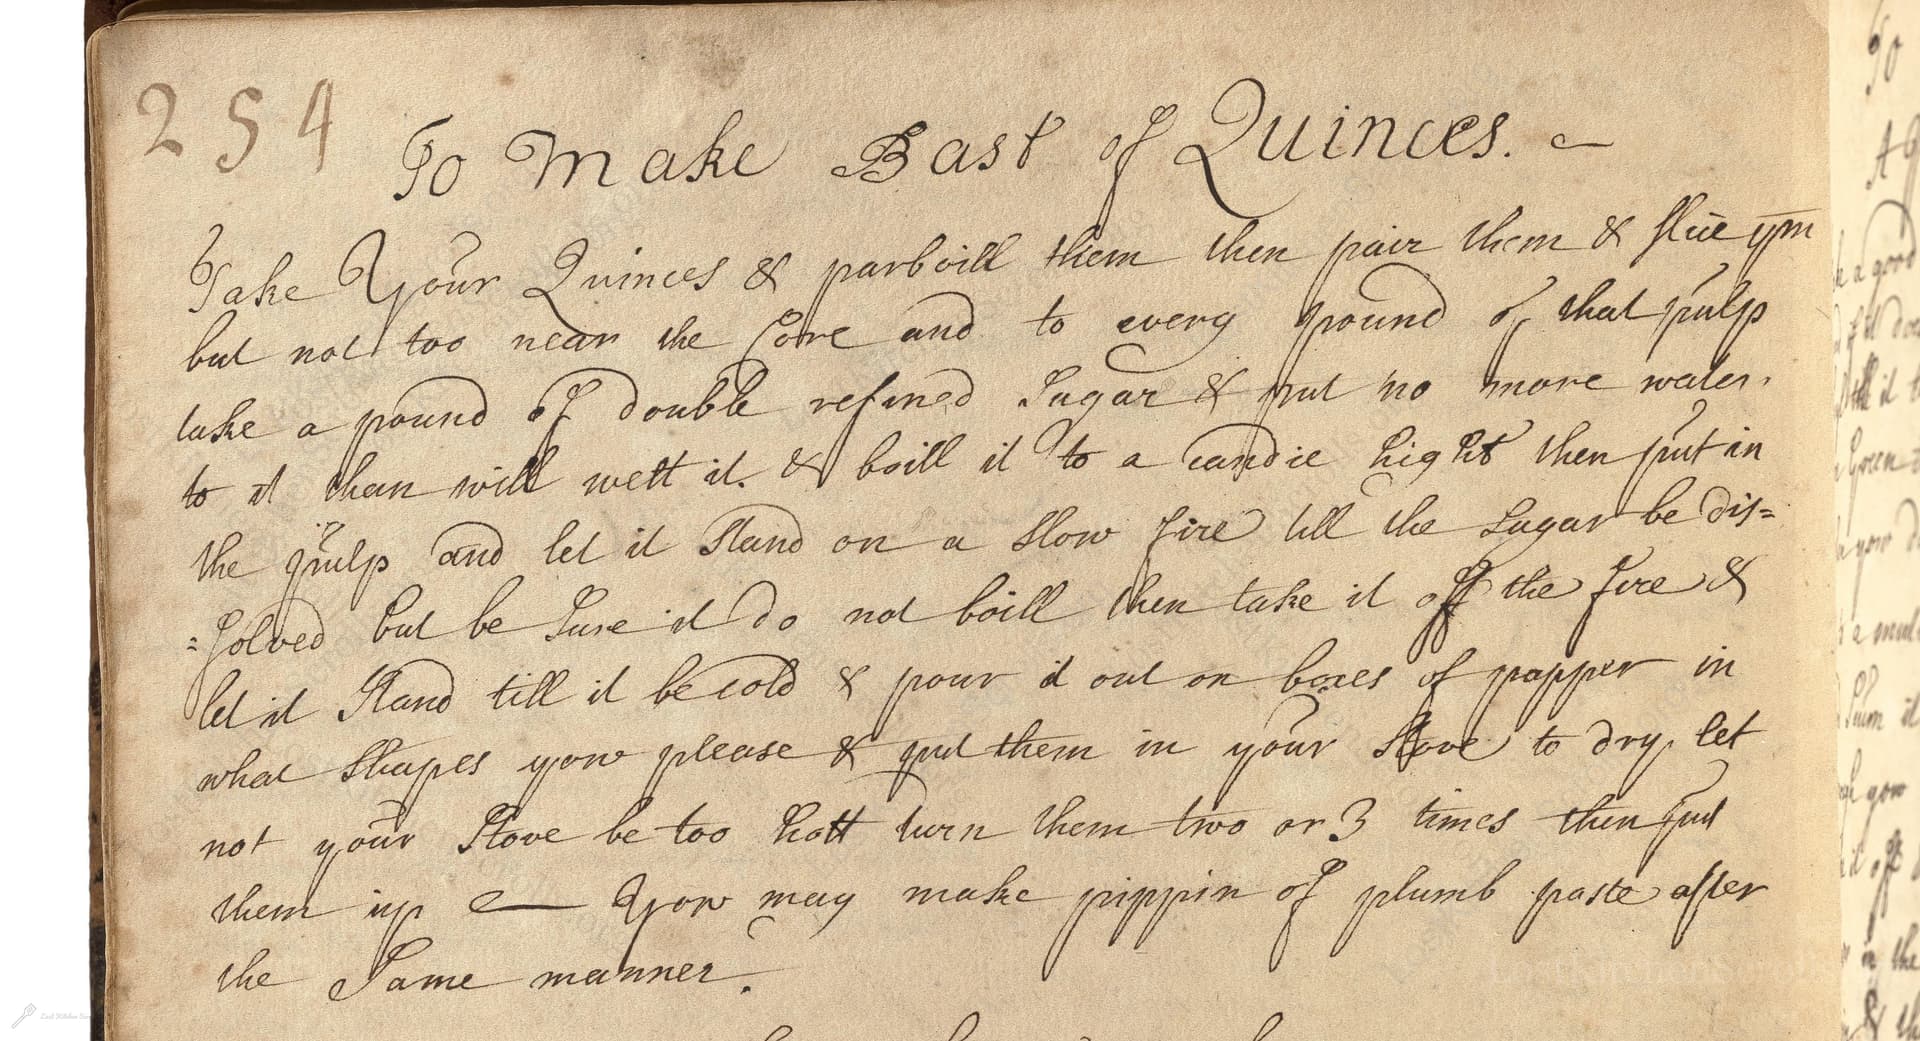 254
To Make Past of Quinces.
Take Your Quinces & parboill them then pair them & slice ym
but not too near the Core and to every pound of that pulp
take a pound of double refined Sugar & put no more water
to it then will wett it. & boill it to a candie hight then put in
the pulp and let it stand on a slow fire till the sugar be dis=
=solved but be Sure it do not boill then take it off the fire &
let it stand till it be cold & pour it out on boxes of papper in
what shapes yow please & put them in your stove to dry, let
not your stove be too hott turn them two or 3 times then put
them up — Yow may make pippin of plumb paste after
the Same manner.